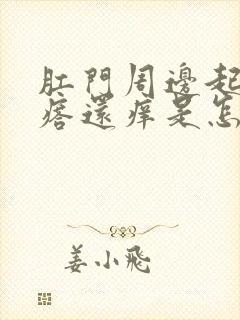 肛門周邊起
瘩還痒是怎
姜小飛